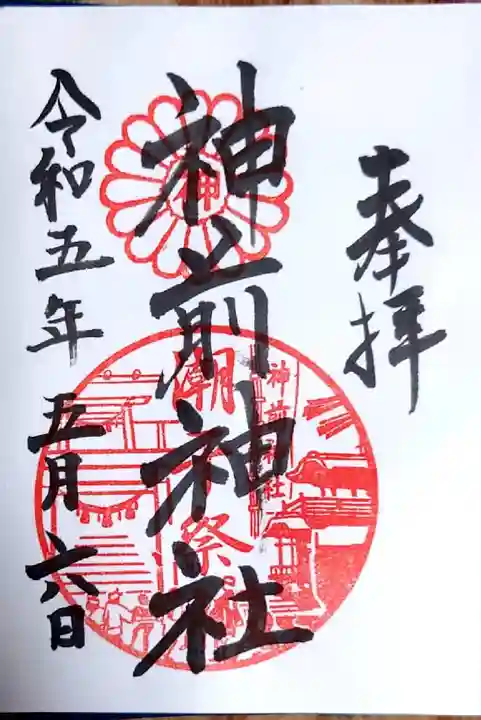 奉拝
神前神社
令和五年 五月 六日
神前神社
潮
祭
神